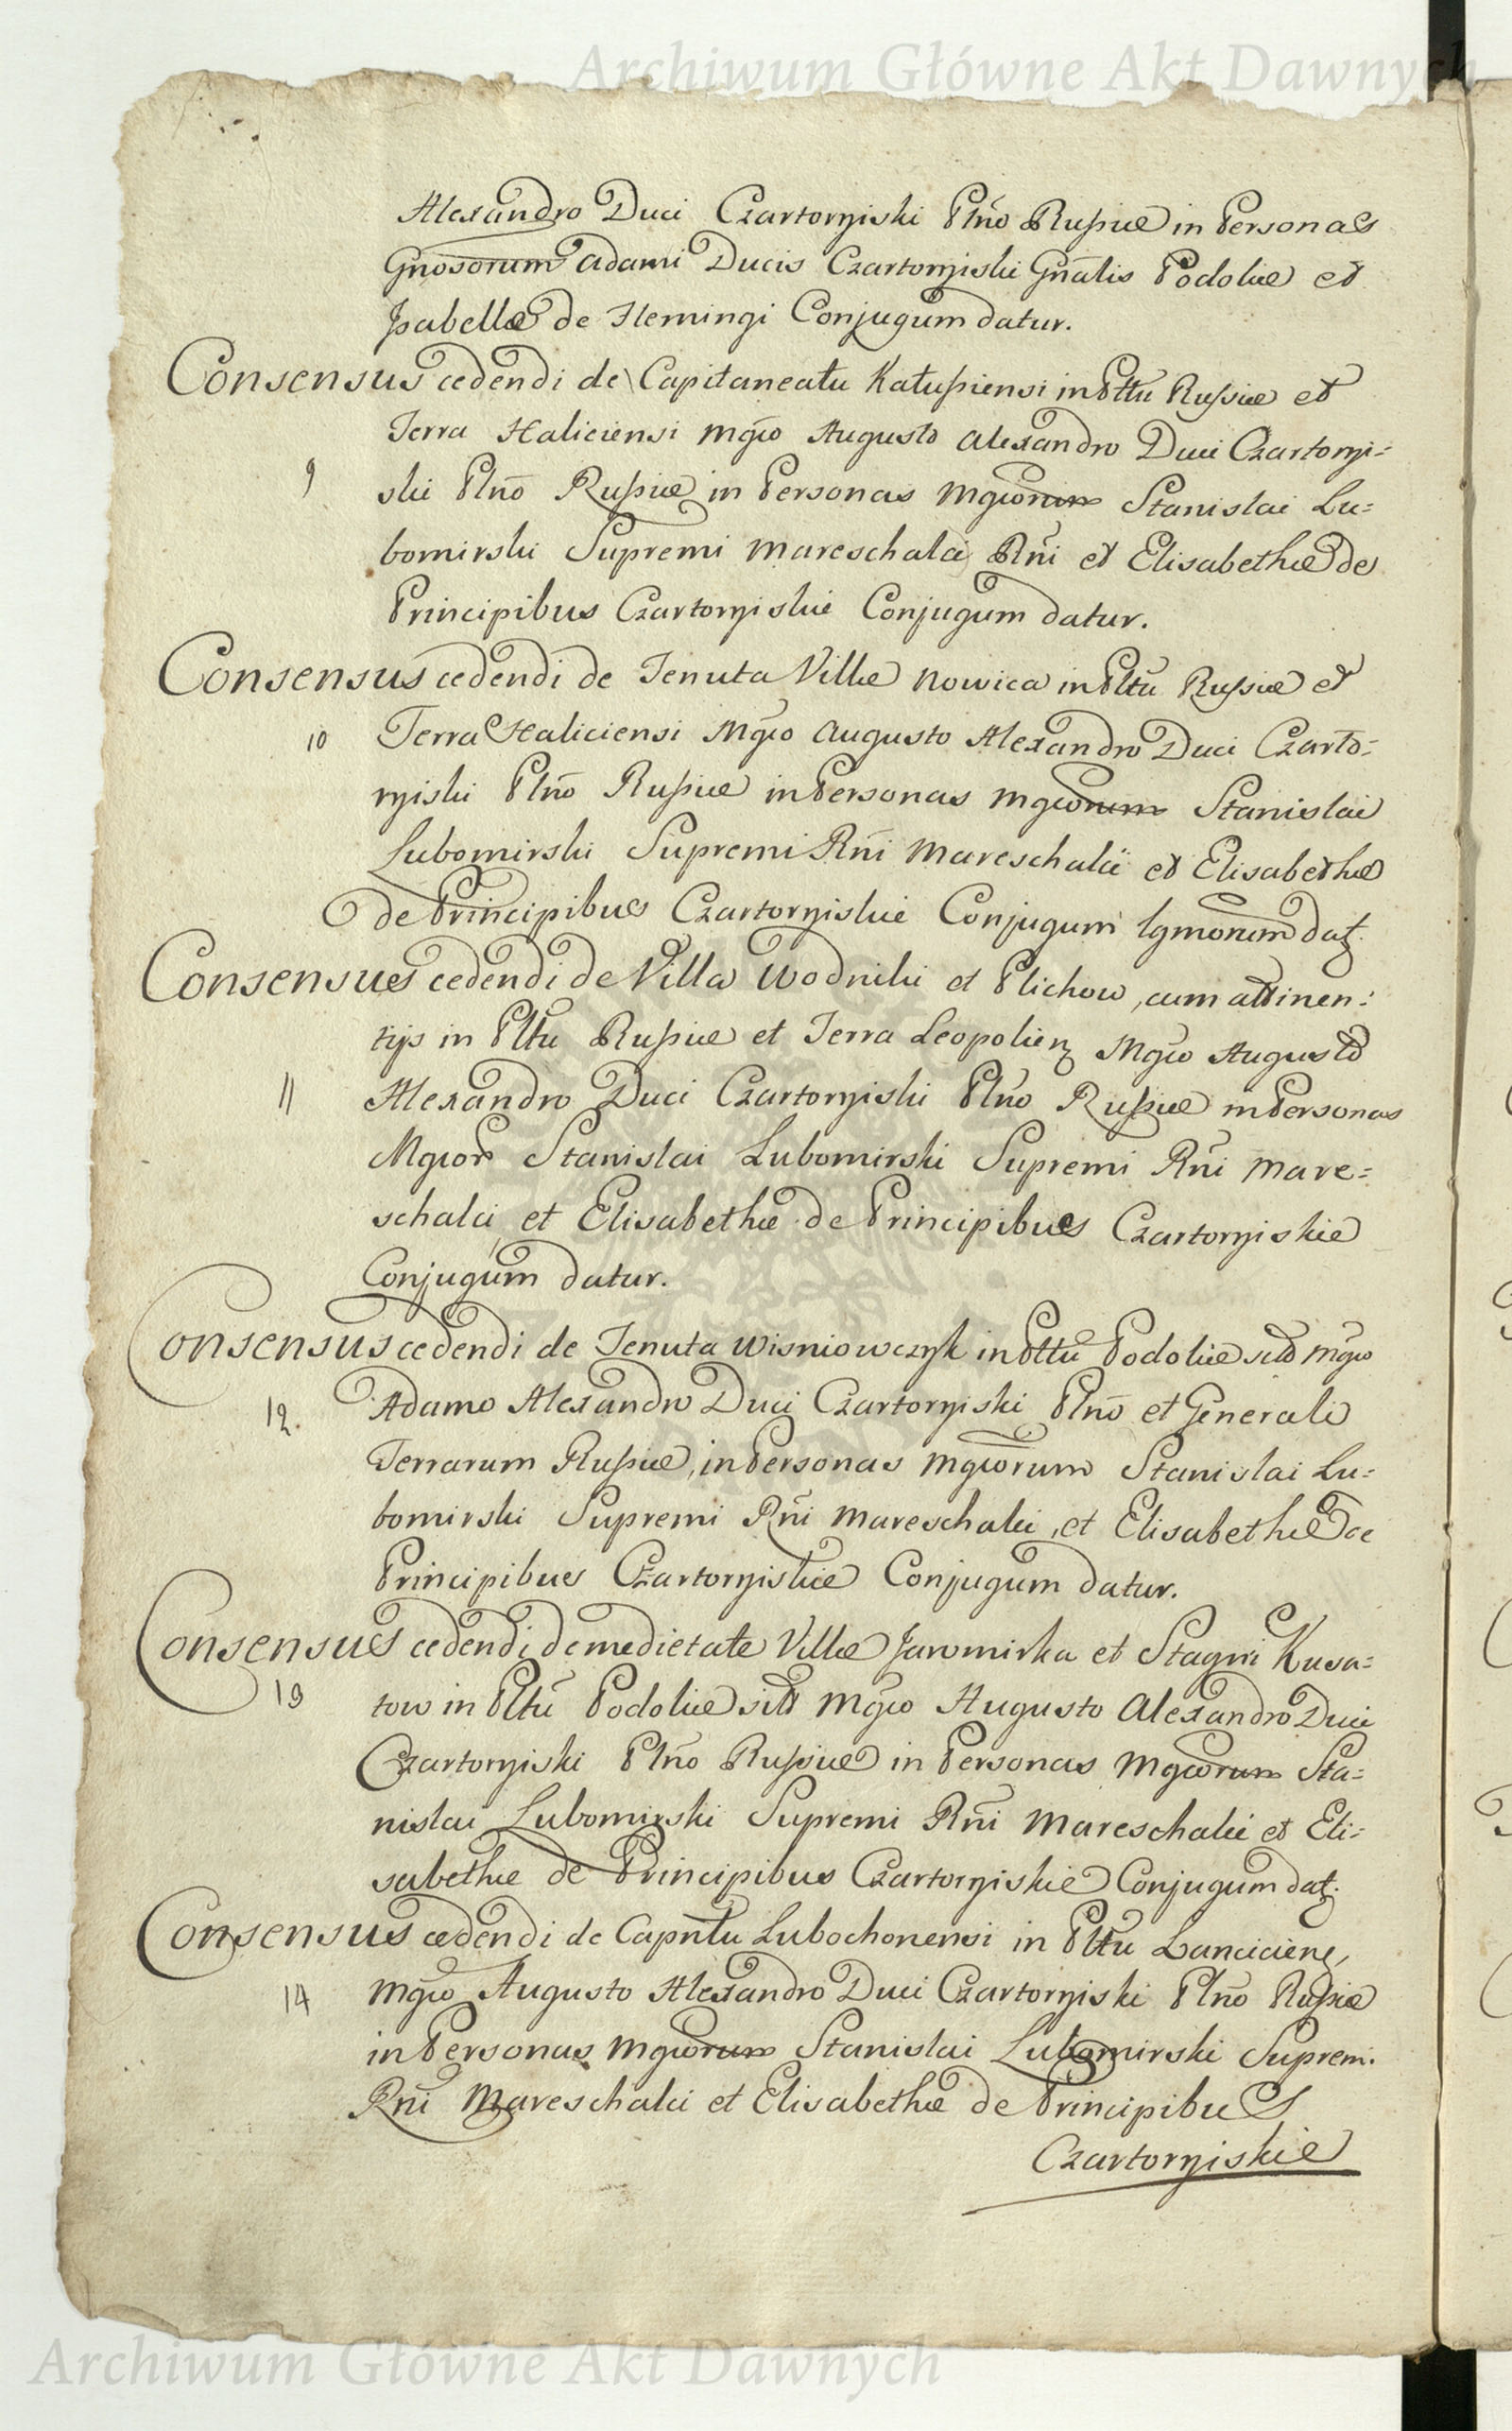 Archiwum Główne Akt Dawnych
Alexandro Duci Czartoryiski Płno Russiæ in Personas
Gnosorum Adami Ducis Czartoryiski Gñalis Podoliæ et
Isabellæ de Flemingi Conjugum datur.
Consensus cedendi de Capitaneatu Katussiensi in Pttu Russiæ et
Terra Haliciensi Mgco Augusto Alexandro Duci Czartoryi=
9 ski Płno Russiæ in Personas Mgcorum Stanislai Lu=
bomirski Supremi Mareschalci Rni et Elisabethæ de
Principibus Czartoryiskie Conjugum datur.
Consensus cedendi de Tenuta Villæ Nowica in Pltu Russiæ et
10 Terra Haliciensi Mgco Augusto Alexandro Duci Czarto=
ryiski Płno Russiæ in Personas Mgcorum Stanislai
Lubomirski Supremi Rni Mareschalci et Elisabethæ
de Principibus Czartoryiskie Conjugum lgmorum datz.
Consensus cedendi de Villa Wodniki et Plichow, cum attinen=
tijs in Pltu Russiæ et Terra Leopolienz Mgco Augusto
11 Alexandro Duci Czartoryiski Płno Russiæ in Personas
Mgcor Stanislai Lubomirski Supremi Rni Mare=
schalci et Elisabethæ de Principibus Czartoryiskie
Conjugum datur.
Consensus cedendi de Tenuta Wisniowczyk in Pttu Podoliæ sito Mgco
12. Adamo Alexandro Duci Czartoryiski Płno et Generali
Terrarum Russiæ, in Personas Mgcorum Stanislai Lu=
bomirski Supremi Rni Mareschalci, et Elisabethæ de
Principibus Czartoryiskie Conjugum datur.
Consensus cedendi de medietate Villæ Jaromirka et Stagni Kusa=
13 tow in Pltu Podoliæ sito Mgco Augusto Alexandro Duci
Czartoryiski Płno Russiæ in Personas Mgcorum Sta=
nislai Lubomirski Supremi Rni Mareschalci et Eli=
sabethæ de Principibus Czartoryiskie Conjugum datz.
Consensus cedendi de Capntu Lubochonensi in Pltu Lancicienz,
14 Mgco Augusto Alexandro Duci Czartoryiski Płno Russiæ
in Personas Mgcorum Stanislai Lubomirski Supremi
Rni Mareschalci et Elisabethæ de Principibus
Czartoryiskie
Archiwum Główne Akt Dawnych